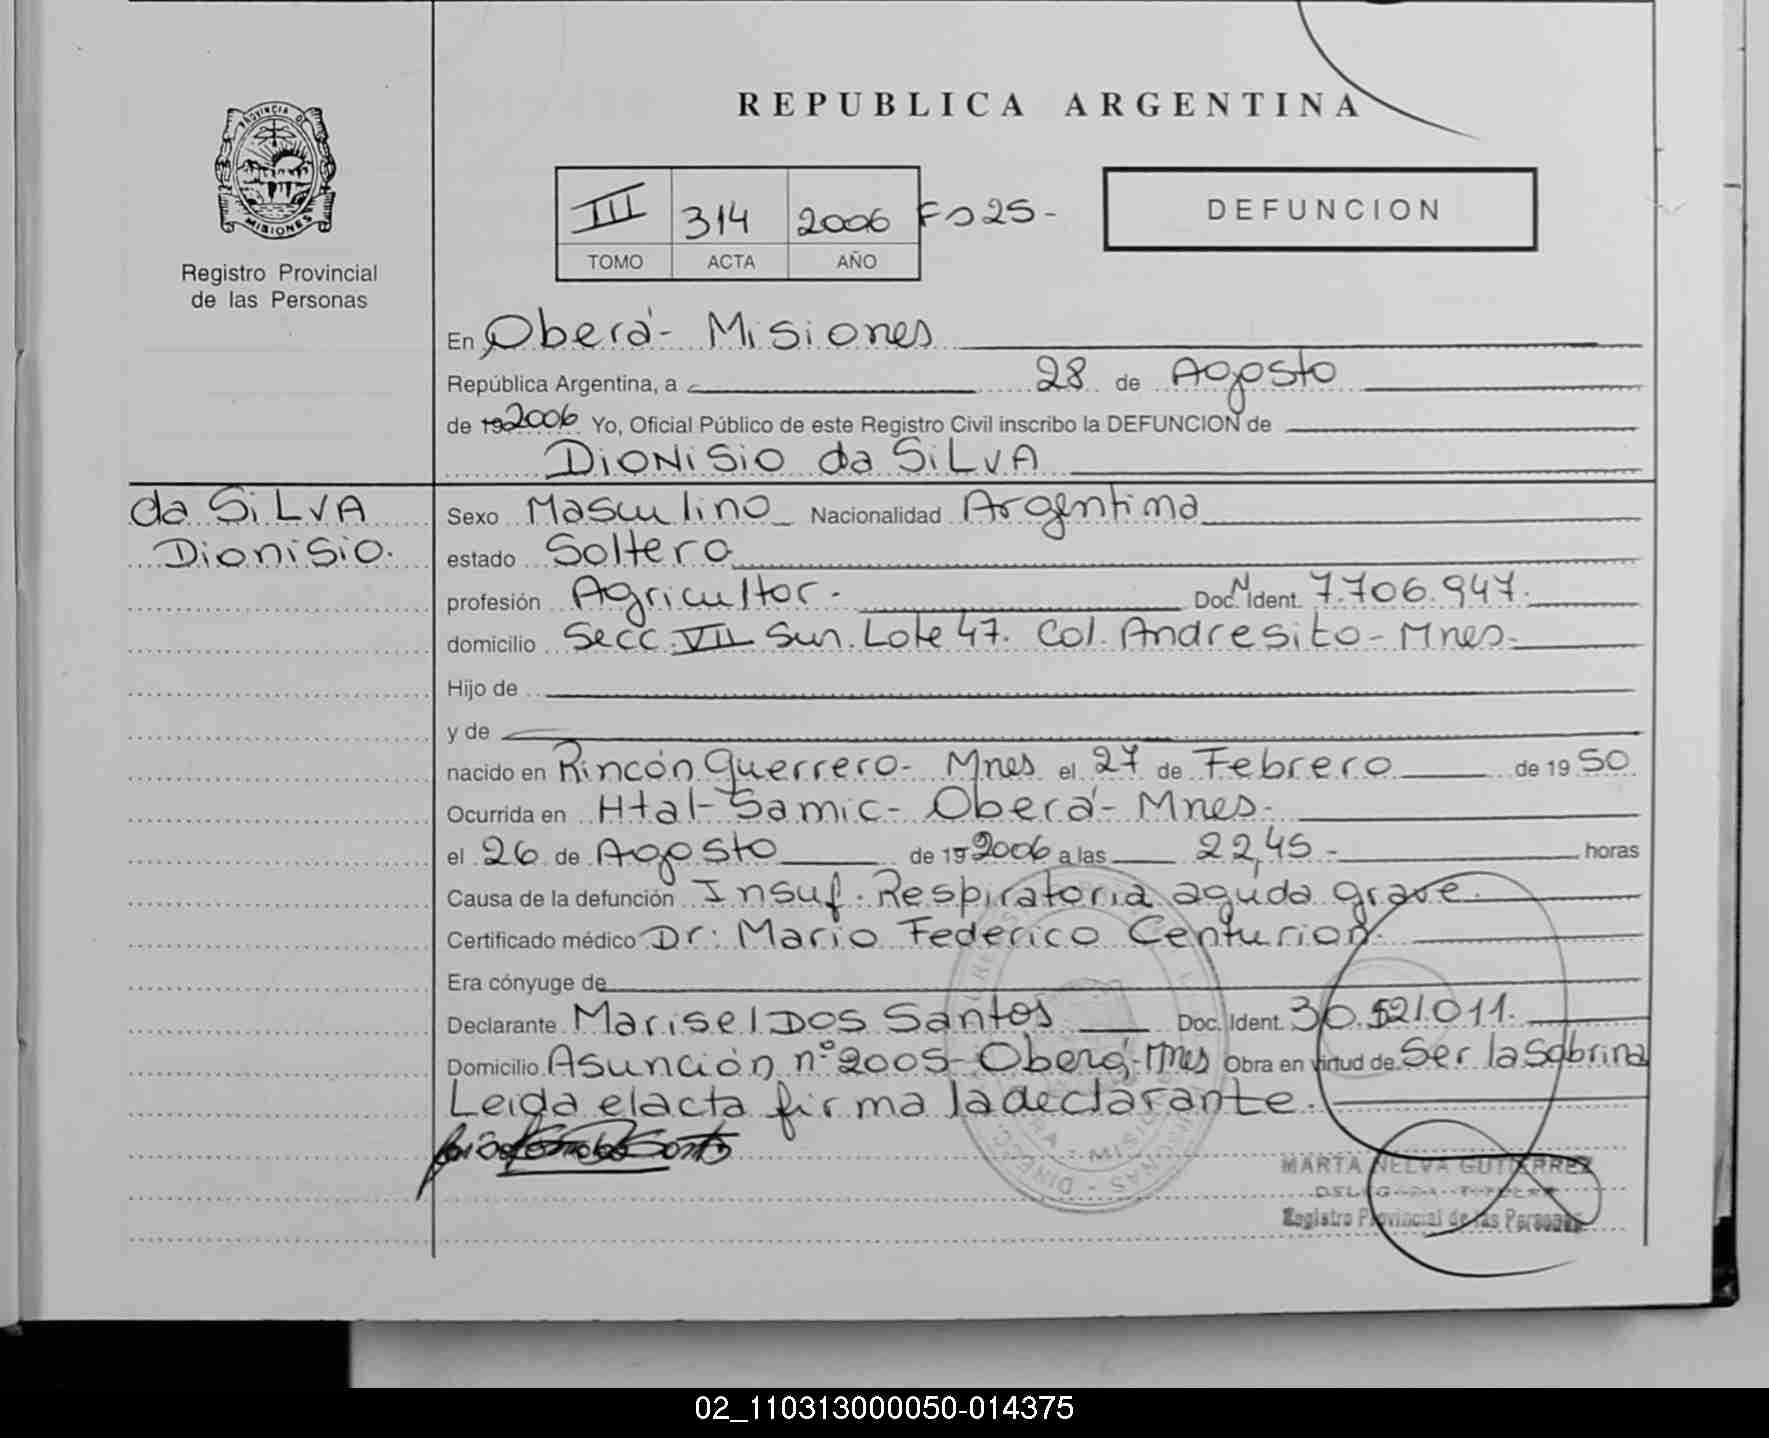 REPUBLICA ARGENTINA
PROVINCIA DE
MISIONES
Registro Provincial
de las Personas
III 314 2006 Fo 25-
TOMO ACTA AÑO
DEFUNCION
En Oberá- Misiones
República Argentina, a 28 de Agosto
de 192006 Yo, Oficial Público de este Registro Civil inscribo la DEFUNCION de
DIONISIO da SILVA
da SILVA
Dionisio.
Sexo Masculino Nacionalidad Argentina
estado Soltero
profesión Agricultor.- Doc. N Ident. 7.706.947.
domicilio Secc. VII Sun. Lote 47. Col. Andresito- Mnes.
Hijo de
y de
nacido en Rincón Guerrero- Mnes el 27 de Febrero de 19 50
Ocurrida en Htal- Samic- Oberá- Mnes.
el 26 de Agosto de 19 2006 a las 22,45 - horas
Causa de la defunción Insuf. Respiratoria aguda grave.
Certificado médico Dr: Mario Federico Centurion.
Era cónyuge de
Declarante Marisel Dos Santos Doc. Ident. 30.521.011.
Domicilio Asunción nº 2005- Oberá,-Mnes Obra en virtud de Ser la Sobrina
Leida el acta firma la declarante.
MARTA NELVA GUTIERREZ
DELEGADA TITULAR
Registro Provincial de las Personas
02_110313000050-014375